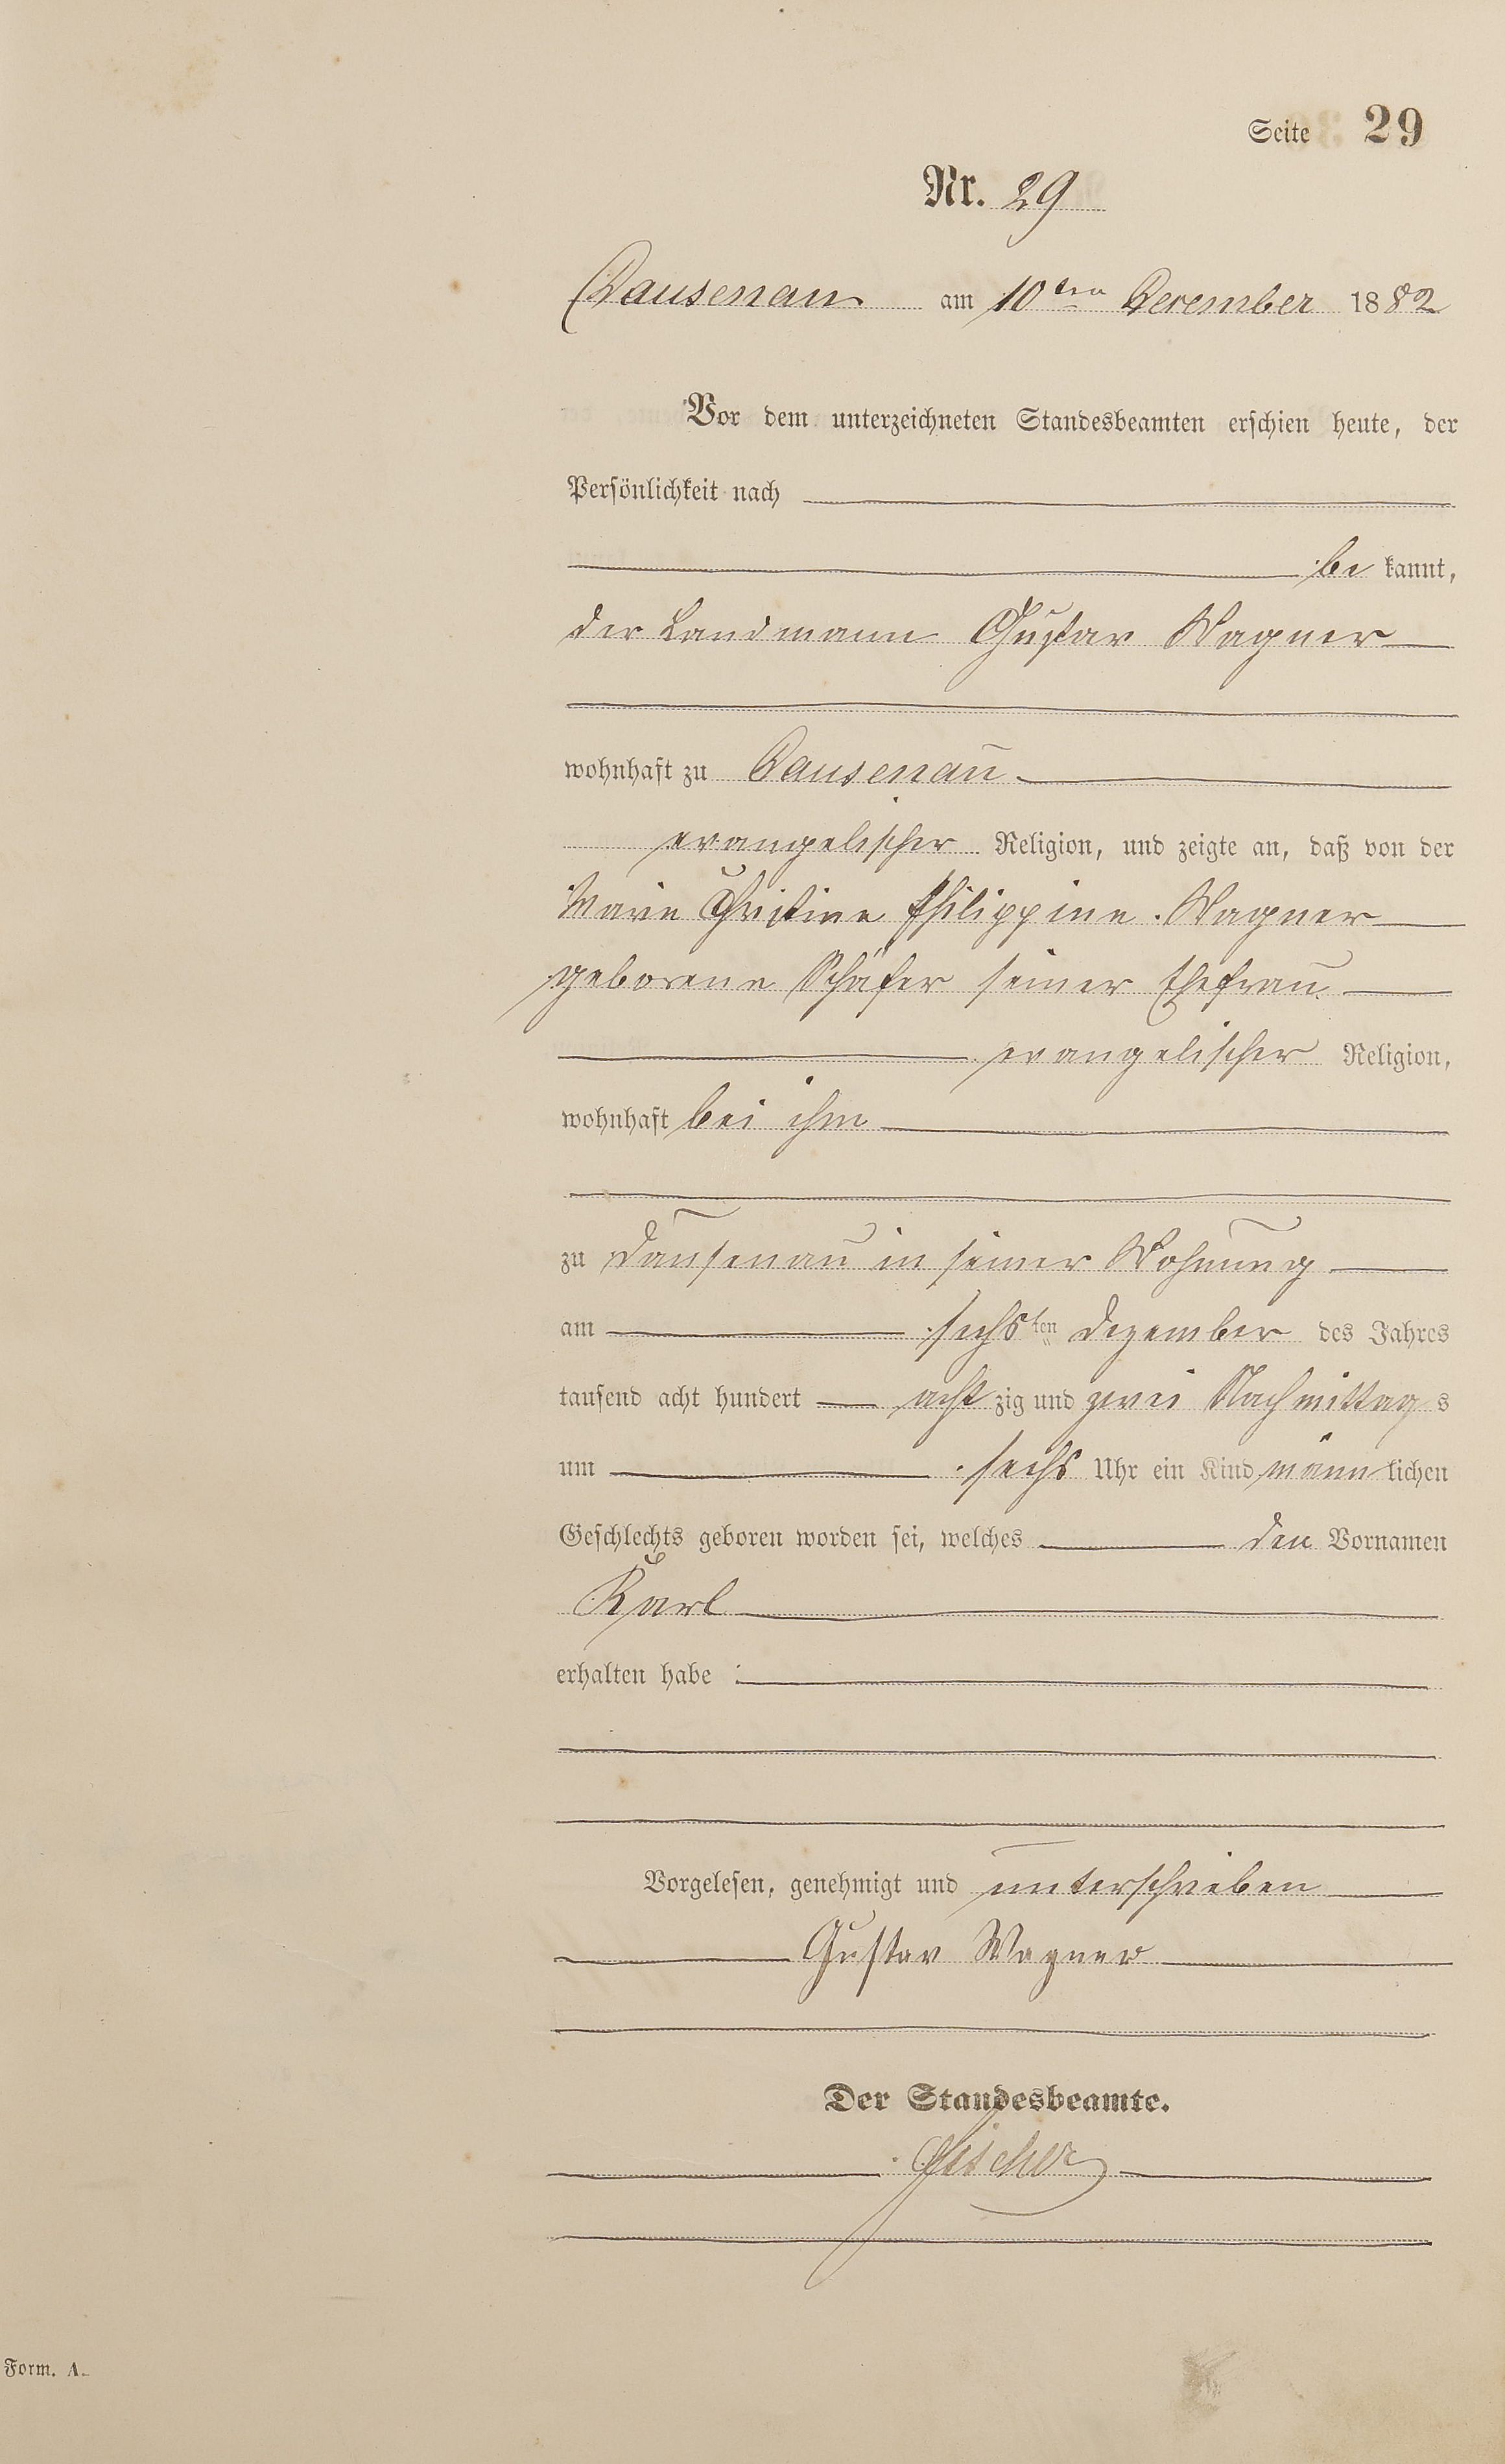 Seite 29
Nr. 29
Dausenau am 10ten December 1882
Vor dem unterzeichneten Standesbeamten erschien heute, der
Persönlichkeit nach
be kannt,
der Landmann Gustav Wagner
wohnhaft zu Dausenau
evangelischer Religion, und zeigte an, daß von der
Marie Christine Philippine Wagner
geborene Schäfer seiner Ehefrau
evangelischer Religion,
wohnhaft bei ihm
zu Dausenau in seiner Wohnung
am sechsten Dezember des Jahres
tausend acht hundert acht zig und zwei Nachmittag s
um sechs Uhr ein Kind männ lichen
Geschlechts geboren worden sei, welches den Vornamen
Karl
erhalten habe
Vorgelesen, genehmigt und unterschrieben
Gustav Wagner
Der Standesbeamte.
Fischer
Form. A.